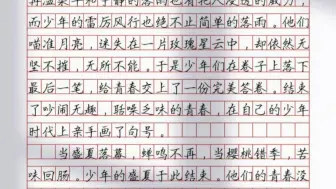 而少年的雷厉风行也绝不止简单的落雨。他们
瞄准月亮，迷失在一片玫瑰星云中，却依然无
坚不摧，无所不能。于是少年们在卷子上落下
最后一笔，给青春交上了一份完美答卷。结束
了吵闹无趣，聒噪乏味的青春，在自己的少年
时代上亲手画了句号。
当盛夏落幕，蝉鸣不再，当樱桃错季，苦
味回肠。少年的盛夏于此结束。他们的青春没